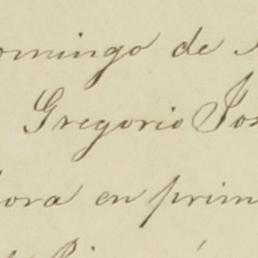 omingo de
Gregorio Jos
ora en prim